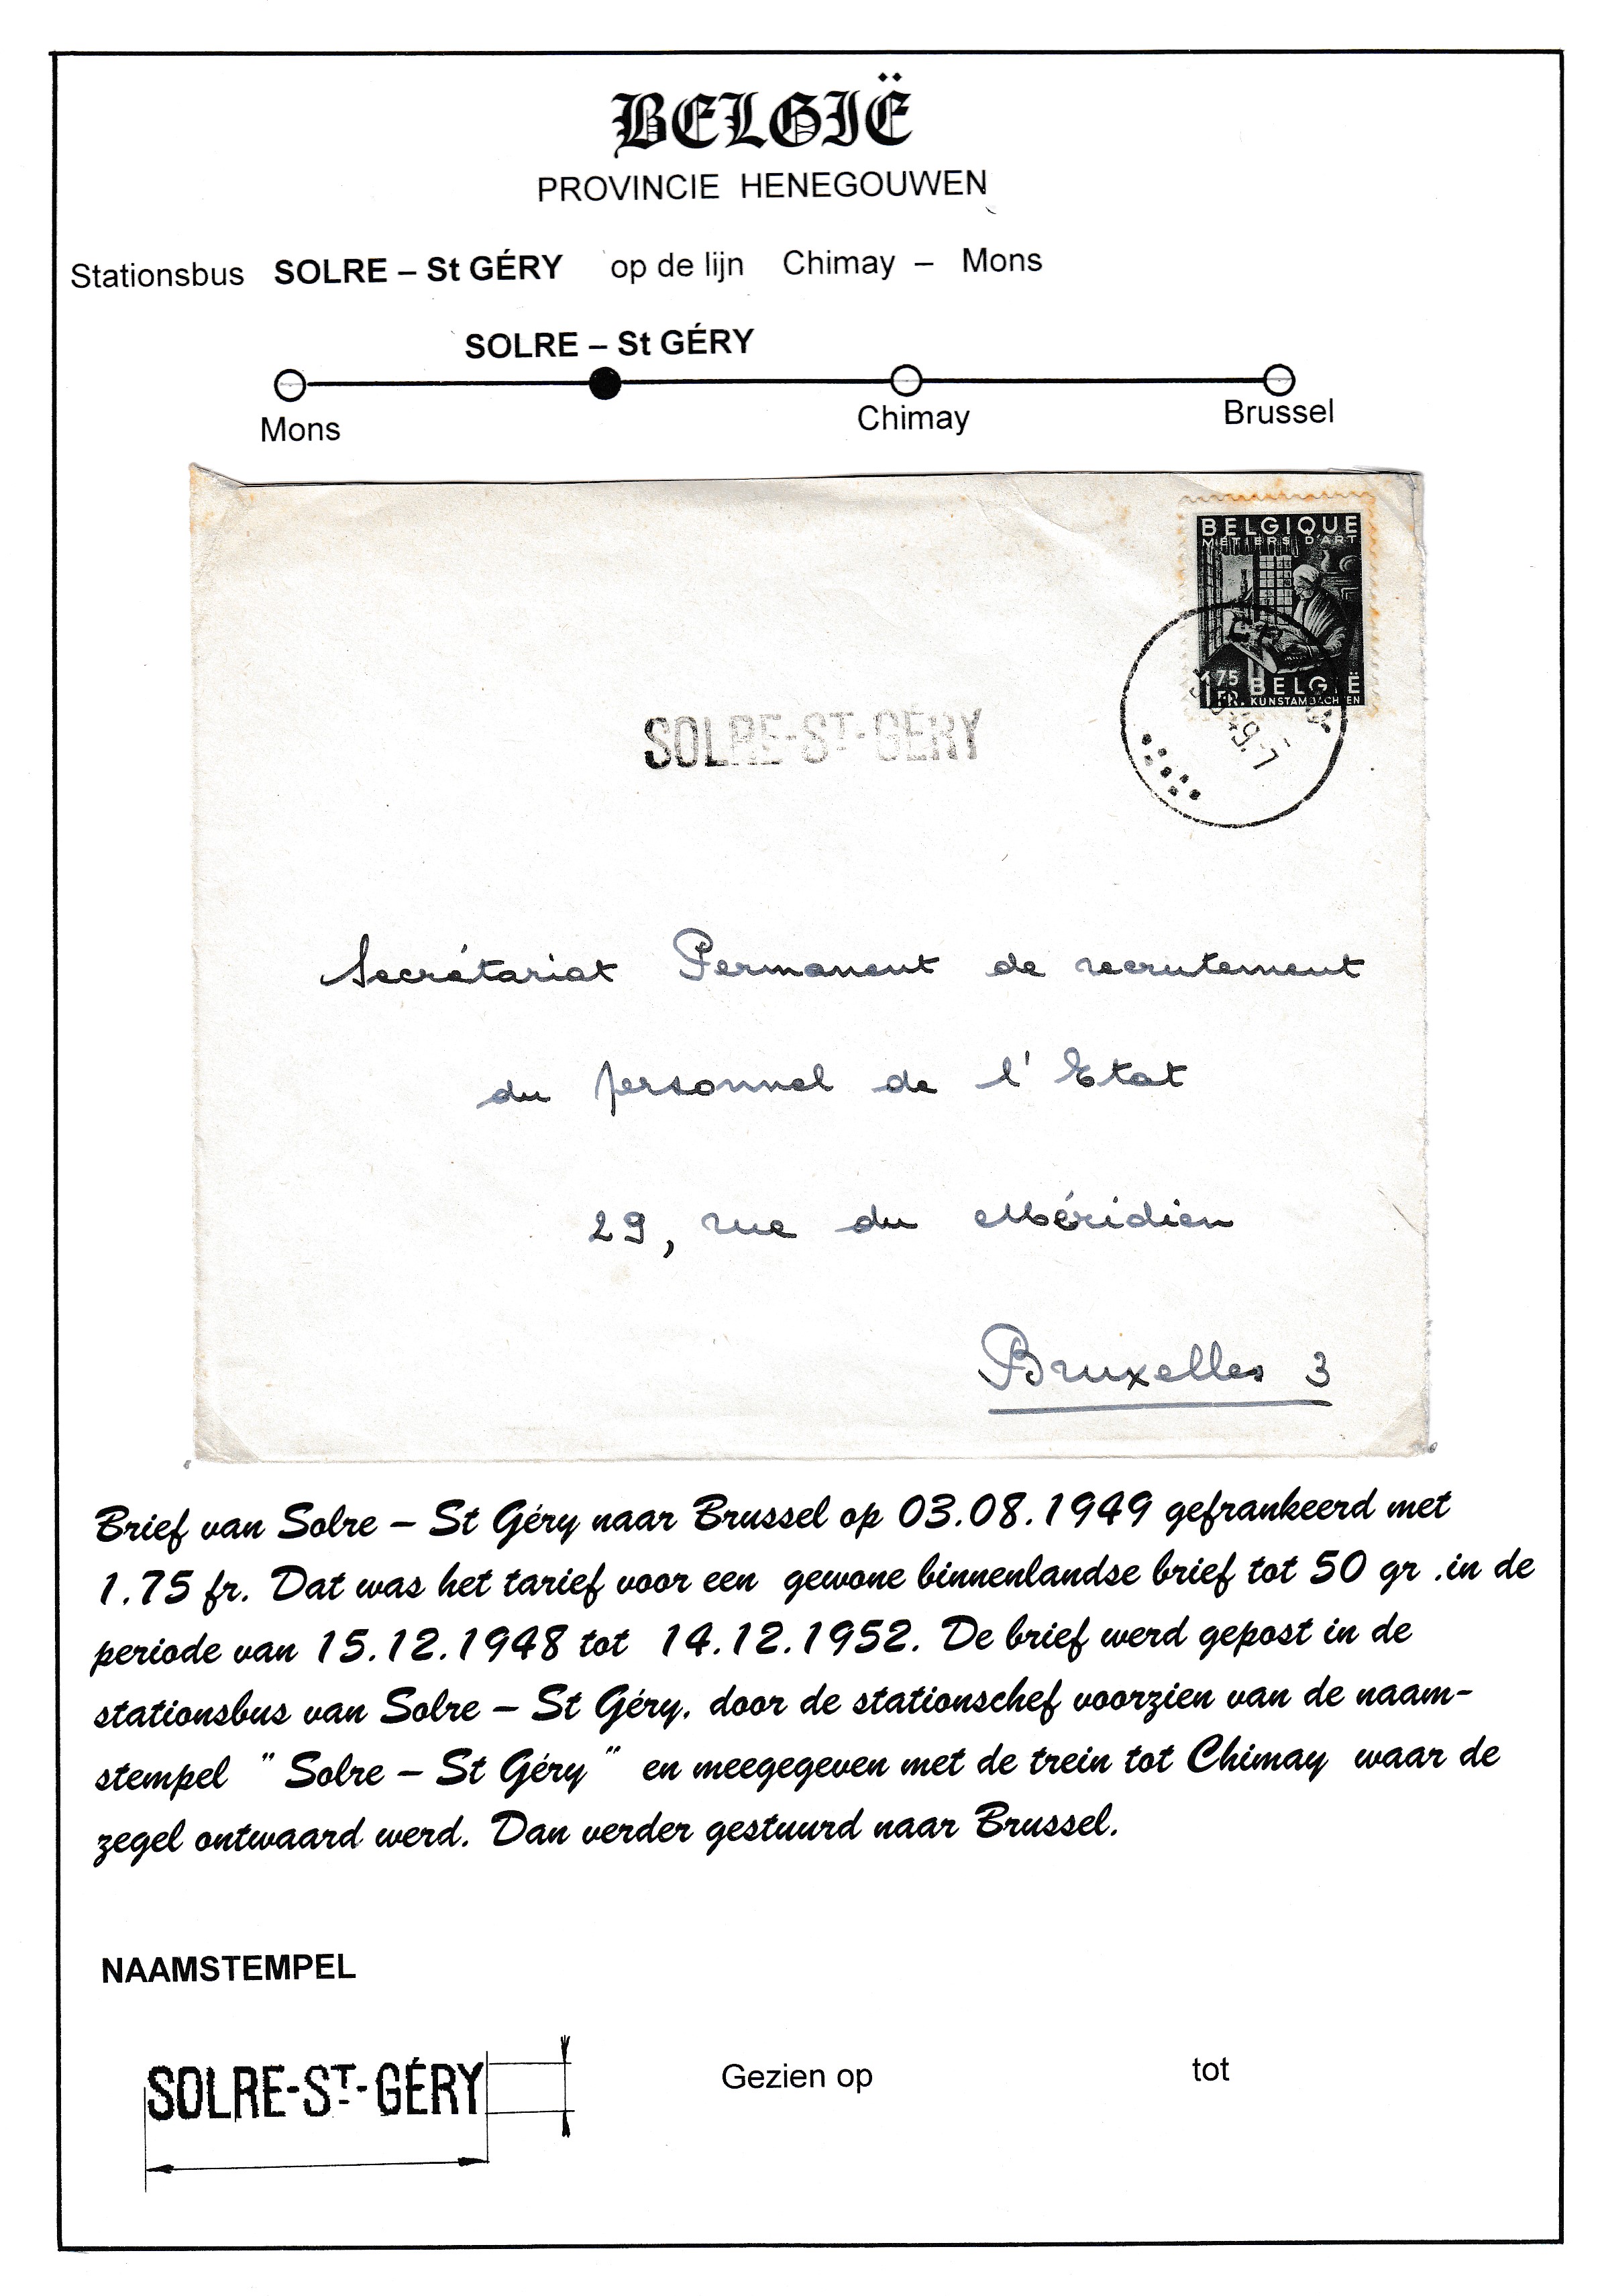 BELGIË
PROVINCIE HENEGOUWEN
Stationsbus SOLRE – St GÉRY op de lijn Chimay – Mons
SOLRE – St GÉRY
Mons Chimay Brussel
BELGIQUE
METIERS D'ART
1 75 BELGIË
FR. KUNSTAMBACHTEN
SOLRE-ST-GÉRY
Secrétariat Permanent de recrutement
du personnel de l'Etat
29, rue du Méridien
Bruxelles 3
Brief van Solre – St Géry naar Brussel op 03.08.1949 gefrankeerd met
1.75 fr. Dat was het tarief voor een gewone binnenlandse brief tot 50 gr .in de
periode van 15.12.1948 tot 14.12.1952. De brief werd gepost in de
stationsbus van Solre – St Géry. door de stationschef voorzien van de naam-
stempel " Solre – St Géry " en meegegeven met de trein tot Chimay waar de
zegel ontwaard werd. Dan verder gestuurd naar Brussel.
NAAMSTEMPEL
SOLRE-ST-GÉRY
Gezien op tot